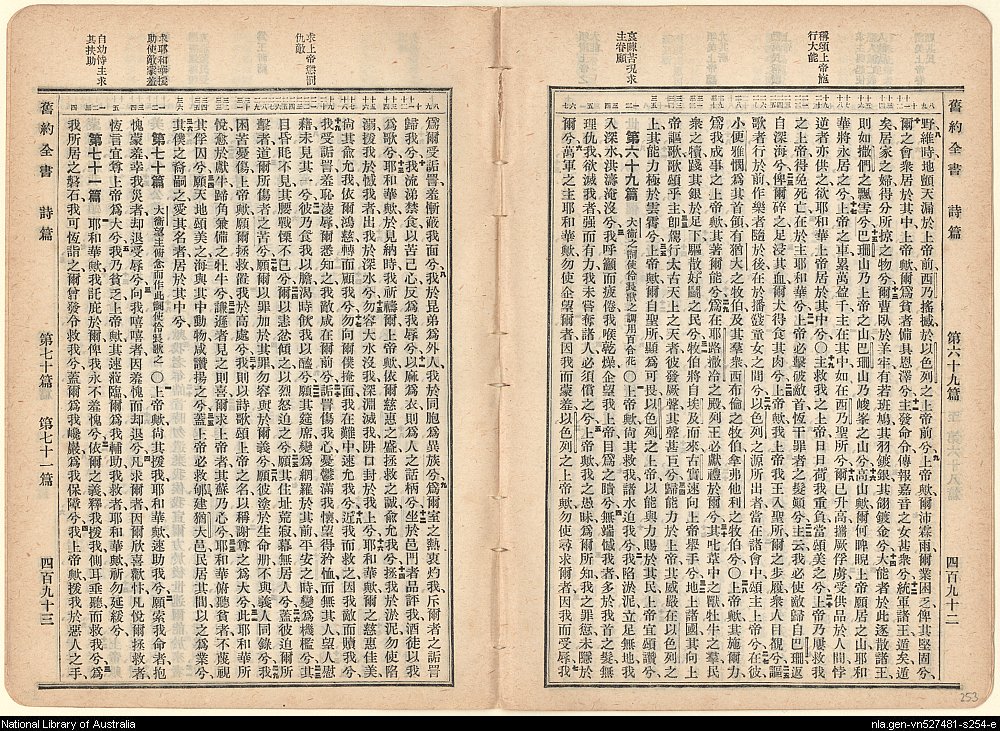 舊約全書 詩篇 第六十九篇 四百九十二
稱頌上帝施
行大能
哀陳苦況求
主眷顧
野維時地顫天漏於上帝前西乃搖撼於以色列之上帝前兮上帝歟爾沛霖雨爾業困乏俾其堅固兮
爾之會衆居於其中上帝歟爾爲貧者備具恩澤兮主發命令傳報嘉音之女甚衆兮統軍諸王遁矣遁
矣居家之婦得分所掠之物兮爾曹臥於羊牢有若班鳩其羽鍍銀其翎鍍金兮大能者於此逐散諸王
則如撒們之飄雪兮巴珊山乃上帝之山巴珊山乃峻峯之山兮高山歟爾何睥睨上帝願居之山耶和
華將永居之兮上帝之車累萬盈千主在其中如在西乃聖所兮爾已升高攜厥俘虜受供品於人間悖
逆者亦供之欲耶和華上帝居於其中兮〇主救我之上帝日日荷我重負當頌美之兮上帝乃屢救我
之上帝得免死亡在於主耶和華兮上帝必擊破敵首恆干罪者之髮顱兮主云我必使敵歸自巴珊返
自深海兮俾爾碎之足浸其血爾犬得食其肉兮上帝歟爾之步履我上帝我王入聖所爾之步履衆人目視兮謳
歌者行於前作樂者隨於後在於播鼗童女之間兮以色列之源所出者當在諸會中頌主上帝兮在彼
小便雅憫爲其首領有猶大之牧伯及其羣衆西布倫之牧伯拿弗他利之牧伯兮〇上帝歟其施爾力
爲我成事之上帝歟其著爾能兮爲在耶路撒冷之殿列王必獻禮於爾兮其叱草中之獸牡牛之羣民
衆之犢踐其銀於足下驅散好鬬之民兮牧伯將自埃及而來古實速向上帝舉手兮地上諸國其向上
帝謳歌歌頌乎主卽駕行太古天上之天者彼發厥聲其聲甚巨兮歸能力於上帝其威嚴在以色列之
上其能力極於雲霄兮上帝歟爾自聖所顯爲可畏以色列之上帝以能與力賜於其民上帝宜頌讚兮
第六十九篇 大衞之詞使伶長歌之調用百合花 〇上帝歟尙其救我諸水迫我兮我陷淤泥立足無地我
入深水洪濤淹沒兮我呼籲而疲倦我喉乾燥企望我上帝目爲之瞶兮無端憾我者多於我首之髮無
理仇我欲滅我者強而有力我未嘗奪諸人必須償之兮上帝歟我之愚昧爲爾所知我之罪愆未隱於
爾兮萬軍之主耶和華歟勿使企望爾者因我而蒙羞以色列之上帝歟勿使尋求爾者因我而受辱我
舊約全書 詩篇 第七十篇 第七十一篇 四百九十三
求上帝懲罰
仇敵
求耶和華援
助使敵蒙羞
自幼恃主求
其扶助
爲爾受詬詈羞慚蔽我面兮我於昆弟爲外人我於同胞爲異族兮爲爾室之熱衷灼我斥爾者之詬詈
歸我兮我流涕禁食以苦己心反爲我辱兮以麻爲衣則爲人之話柄兮坐於邑門者品評我酒徒以我
爲歌兮惟我耶和華歟於見納時我祈禱爾上帝歟依爾慈惠之盛拯救之誠兪允我兮拯我於淤泥勿使陷
溺援我於憾我者出我於深水兮勿容大水沒我深淵滅我阱口封於我上兮耶和華歟爾之慈惠佳美
尙其兪允我依爾鴻慈轉而顧我兮勿向爾僕掩面我在難中速允我兮近我而救之因我敵而贖我兮
我受詬詈羞恥凌辱爾悉知之我敵咸在爾前兮詬詈傷我心憂鬱滿我懷望得矜恤而無其人望人慰
藉未見其一兮彼乃食我以膽渴時飲我以醯兮願其筵席變爲網羅於其前平安之時變爲機檻兮其
目昏眊不見其腰戰慄不已兮爾以恚忿傾之以烈怒迫之兮願其住址荒寂幕無居人兮蓋彼迫爾所
擊者道爾所傷者之苦兮願爾以罪加於其罪勿容與於爾義兮願彼塗於生命册不與義人同錄兮我
困苦憂傷上帝歟願爾拯救置我於高處兮我則以詩歌頌上帝之名以稱謝尊之爲大兮此耶和華所
悅愈於獻牛蹄角兼備之牡牛兮謙遜者見之則喜爾求上帝者其蘇乃心兮耶和華俯聽貧者不蔑視
其俘囚兮願天地頌美之海與其中動物咸讚揚之兮蓋上帝必救郇建猶大邑民居其間以之爲業兮
其僕之裔嗣之愛其名者居於其中兮
第七十篇 大衞望主眷念而作此詞使伶長歌之 〇上帝歟尙其援我耶和華歟速助我兮願索我命者抱
愧蒙羞幸我災者却退受辱兮向我嘻嘻者因羞愧而却退兮凡求爾者因爾欣喜歡忭凡悅爾拯救者
恆言宜尊上帝爲大兮我乃貧乏上帝歟其速蒞臨爾爲我輔助我救者耶和華歟祈勿延緩兮
第七十一篇 耶和華歟我託庇於爾俾我永不羞愧兮依爾之義釋我援我側耳垂聽而救我兮爲
我所居之磐石我可恆詣之爾曾發令救我兮蓋爾爲我巉巖爲我保障兮我上帝歟援我於惡人之手
National Library of Australia
253
nla.gen-vn527481-s254-e